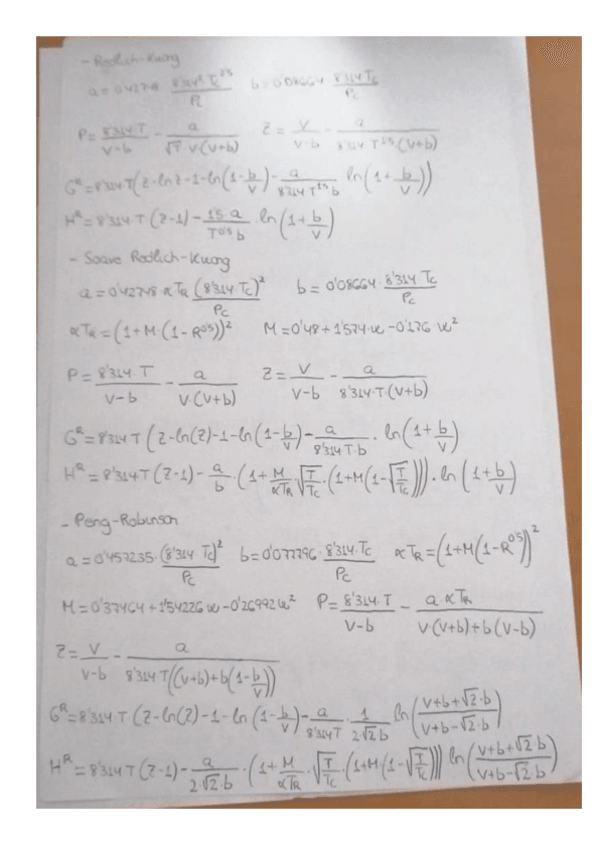 - Redlich-Kwong
a = 0'42748 8'314² Tc^2'5 / Pc    b = 0'08664 8'314 Tc / Pc
P = 8'314 T / (V-b) - a / (√T V(V+b))    Z = V / (V-b) - a / (8'314 T^1'5 (V+b))
G^R = 8'314 T (Z - ln Z - 1 - ln(1 - b/V) - a / (8'314 T^1'5 b) ln(1 + b/V))
H^R = 8'314 T (Z-1) - 1'5 a / (T^0'5 b) ln(1 + b/V)
- Soave Redlich-Kwong
a = 0'42748 · αTR (8'314 Tc)² / Pc    b = 0'08664 · 8'314 Tc / Pc
αTR = (1 + M · (1 - R^0'5))²    M = 0'48 + 1'574·w - 0'176 w²
P = 8'314 · T / (V-b) - a / (V(V+b))    Z = V / (V-b) - a / (8'314·T·(V+b))
G^R = 8'314 T (Z - ln(Z) - 1 - ln(1 - b/V) - a / (8'314 T·b) · ln(1 + b/V)
H^R = 8'314 T (Z-1) - a/b · (1 + M/αTR √(T/Tc) · (1 + M(1 - √(T/Tc)))) · ln(1 + b/V)
- Peng-Robinson
a = 0'457235 · (8'314 Tc)² / Pc    b = 0'077796 · 8'314·Tc / Pc    αTR = (1 + M(1 - R^0'5))²
M = 0'37464 + 1'54226 w - 0'26992 w²    P = 8'314·T / (V-b) - a αTR / (V(V+b) + b(V-b))
Z = V / (V-b) - a / (8'314 T((V+b) + b(1 - b/V)))
G^R = 8'314 · T (Z - ln(Z) - 1 - ln(1 - b/V) - a / (8'314 T) · 1 / (2√2 b) ln((V+b+√2·b) / (V+b-√2·b))
H^R = 8'314 T (Z-1) - a / (2·√2·b) · (1 + M/αTR · √(T/Tc) · (1 + M(1 - √(T/Tc)))) ln((V+b+√2 b) / (V+b-√2 b))